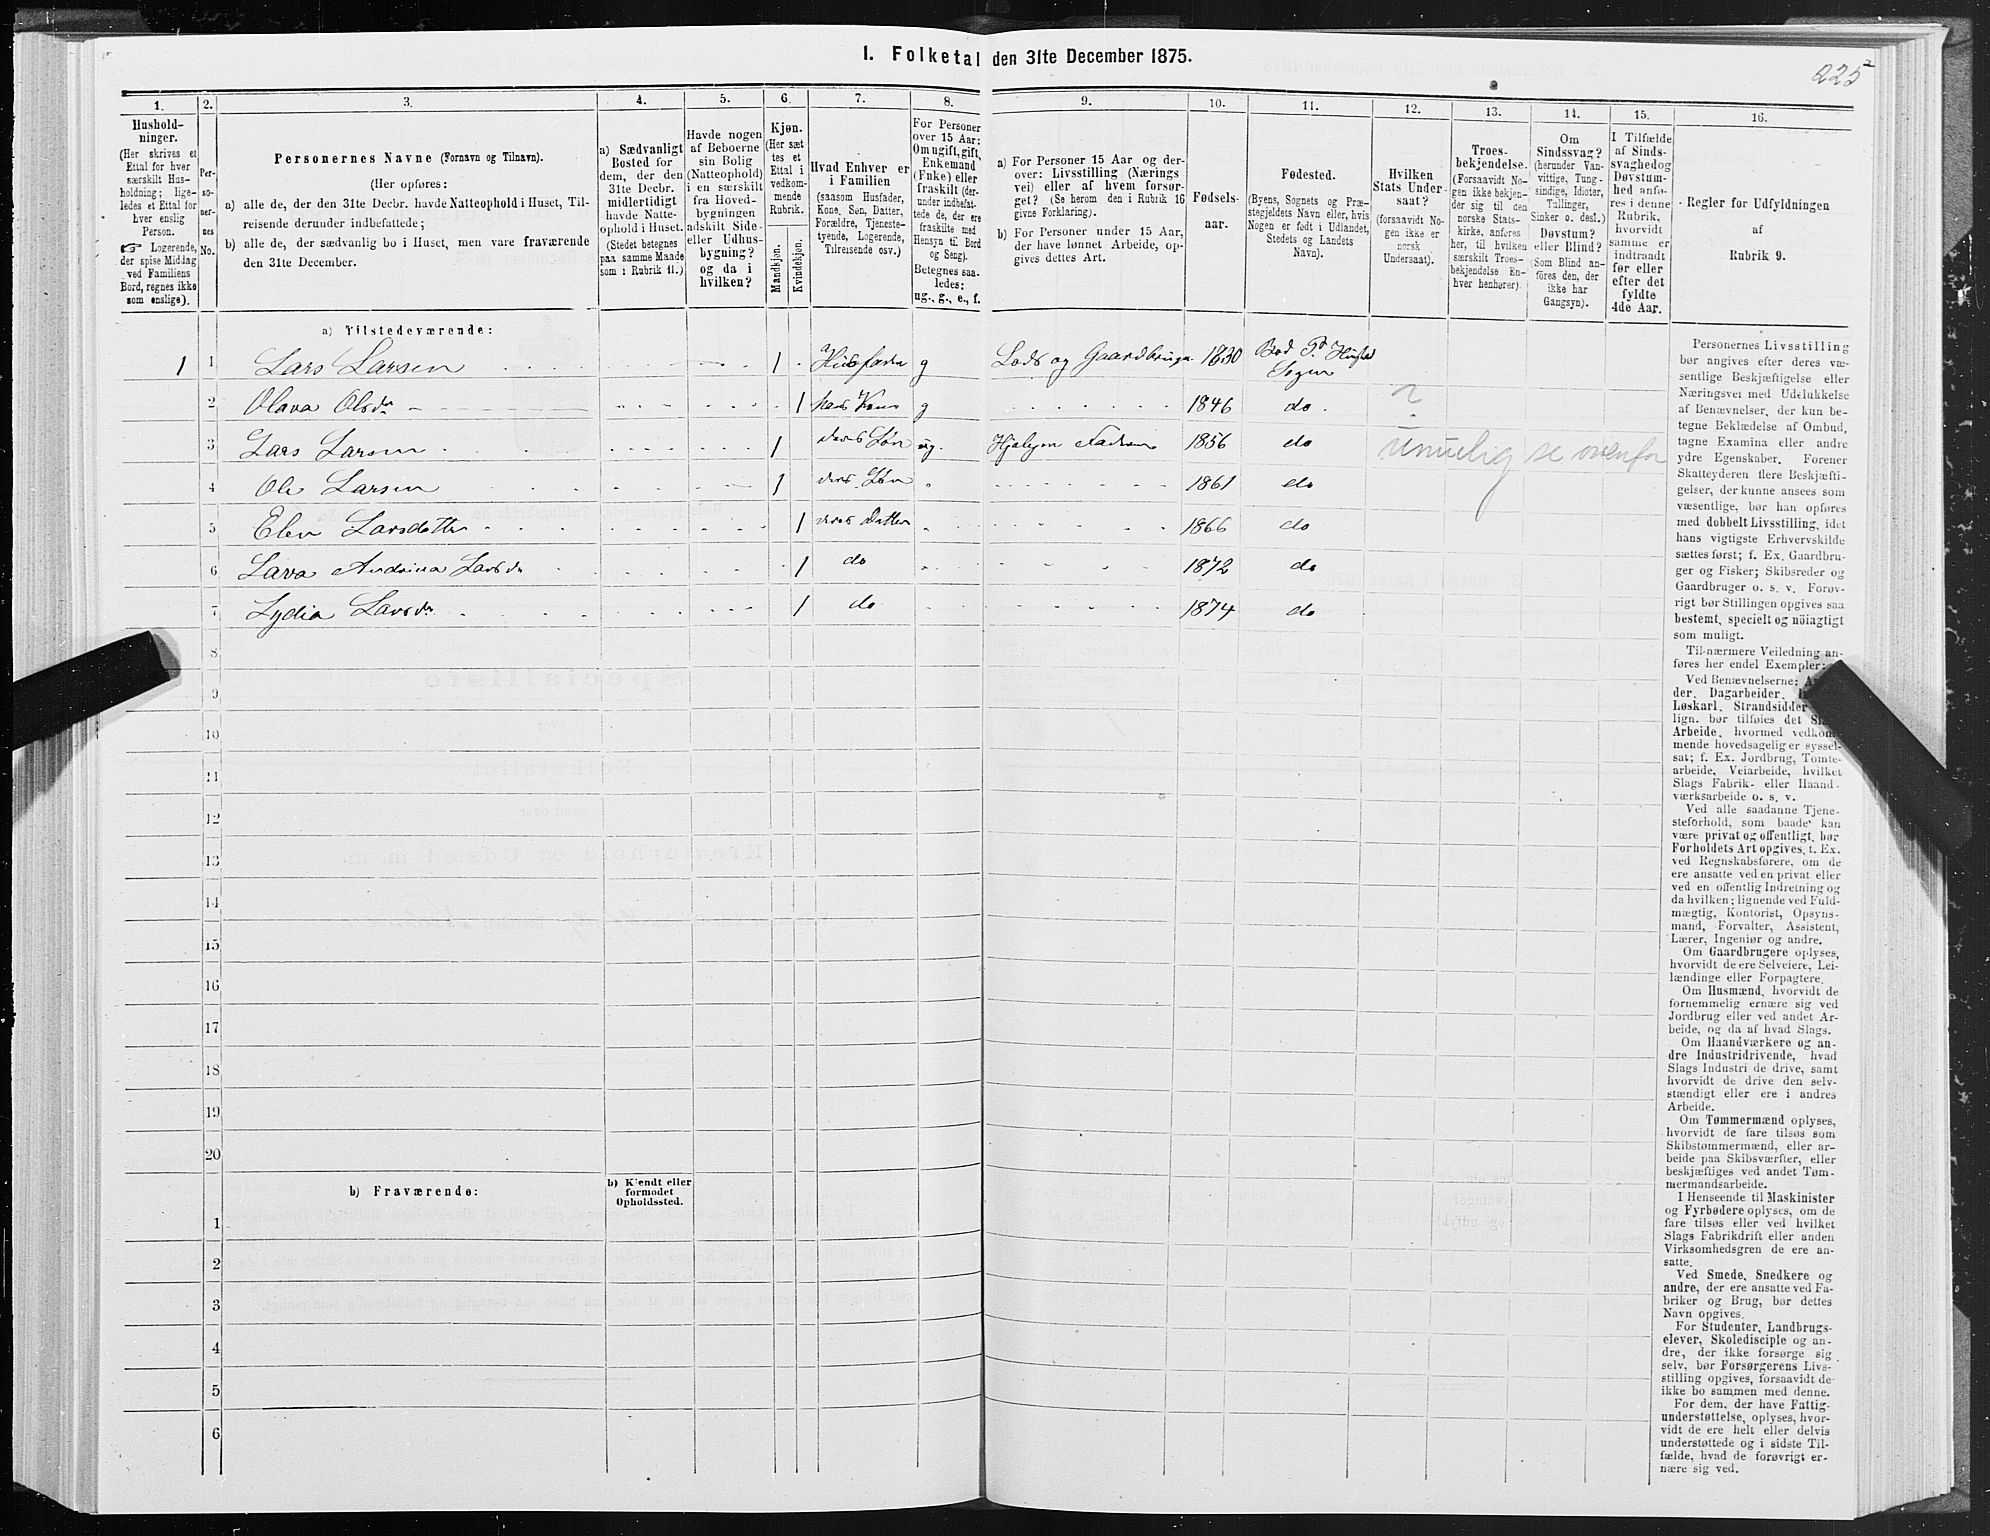 1. Folketal den 31te December 1875.
225
1.
2.
3.
4.
5.
6.
7.
8.
9.
10.
11.
12.
13.
14.
15.
16.
Hushold-
ninger.
(Her skrives et
Ettal for hver
særskilt Hus-
holdning; lige-
ledes et Ettal for
hver enslig
Person.
☞ Logerende,
der spise Middag
ved Familiens
Bord, regnes ikke
som enslige).
Per-
so-
ner-
nes
No.
Personernes Navne (Fornavn og Tilnavn).
(Her opføres:
a) alle de, der den 31te Decbr. havde Natteophold i Huset, Til-
reisende derunder indbefattede;
b) alle de, der sædvanlig bo i Huset, men vare fraværende
den 31te December.
a) Sædvanligt
Bosted for
dem, der den
31te Decbr.
midlertidigt
havde Natte-
ophold i Huset.
(Stedet betegnes
paa samme Maade
som i Rubrik 11.)
Havde nogen
af Beboerne
sin Bolig
(Natteophold)
i en særskilt
fra Hoved-
bygningen
adskilt Side-
eller Udhus-
bygning?
og da i
hvilken?
Kjøn.
(Her sæt
tes et
Ettal i
vedkom-
mende
Rubrik.
Mandkjøn.
Kvindekjøn.
Hvad Enhver er
i Familien
(saasom Husfader,
Kone, Søn, Datter,
Forældre, Tjeneste-
tyende, Logerende,
Tilreisende osv.)
For Personer
over 15 Aar:
Om ugift, gift,
Enkemand
(Enke) eller
fraskilt (der-
under indbefat-
tede de, der ere
fraskilte med
Hensyn til Bord
og Seng).
Betegnes saa-
ledes:
ug., g., e., f.
a) For Personer 15 Aar og der-
over: Livsstilling (Nærings
vei) eller af hvem forsør-
get? (Se herom den i Rubrik 16
givne Forklaring).
b) For Personer under 15 Aar,
der have lønnet Arbeide, op-
gives dettes Art.
Fødsels-
aar.
Fødested.
(Byens, Sognets og Præ-
stegjeldets Navn eller, hvis
Nogen er født i Udlandet,
Stedets og Landets
Navn).
Hvilken
Stats Under-
saat?
(forsaavidt No-
gen ikke er
norsk
Undersaat).
Troes-
bekjendelse.
(Forsaavidt No-
gen ikke bekjen-
der sig til den
norske Stats-
kirke, anføres
her, til hvilken
særskilt Troes-
bekjendelse En-
hver henhører).
Om
Sindssvag?
(herunder Van-
vittige, Tung-
sindige, Idioter,
Tullinger,
Sinker o. desl.)
Døvstum?
eller Blind?
(Som Blind an-
føres den, der
ikke har
Gangsyn).
I Tilfælde
af Sinds-
svaghed og
Døvstum-
hed anfø-
res i denne
Rubrik,
hvorvidt
samme er
indtraadt
før eller
efter det
fyldte
4de Aar.
Regler for Udfyldningen
af
Rubrik 9.
a) Tilstedeværende:
1 1 Lars Larsen 1 Husfader g Lods og Gaardbruger 1830 Bod Pr Hustad
Sogn
2 Olava Olsdr 1 hans Kone g 1846 do. ?
3 Lars Larsen 1 deres Søn ug. Hjælper Faderen 1856 do umuelig se ovenfor
4 Ole Larsen 1 deres Søn 1861 do
5 Elen Larsdatter 1 deres Datter 1866 do
6 Lava Andrina Larsdr 1 do 1872 do
7 Lydia Larsdr 1 do 1874 do
8
9
10
11
12
13
14
15
16
17
18
19
20
b) Fraværende:
b) Kjendt eller
formodet
Opholdssted.
1
2
3
4
5
6
Personernes Livsstilling
bør angives efter deres væ-
sentlige Beskjæftigelse eller
Næringsvei med Udelukkelse
af Benævnelser, der kun be-
tegne Beklædelse af Ombud,
tagne Examina eller andre
ydre Egenskaber. Forener
Skatteyderen flere Beskjæfti-
gelser, der kunne ansees som
væsentlige, bør han opføres
med dobbelt Livsstilling, idet
hans vigtigste Erhvervskilde
sættes først; f. Ex. Gaardbru-
ger og Fisker; Skibsreder og
Gaardbruger o. s. v. Forøv-
rigt bør Stillingen opgives saa
bestemt, specielt og nöiagtigt
som muligt.
Til nærmere Veiledning an-
føres her endel Exempler:
Ved Benævnelserne:
der, Dagarbeider,
Løskarl, Strandsidder
lign. bør tilføies det
Arbeide, hvormed vedkom-
mende hovedsagelig er syssel-
sat; f. Ex. Jordbrug, Tomte-
arbeide, Veiarbeide, hvilket
Slags Fabrik- eller Haand-
værksarbeide o. s. v.
Ved alle saadanne Tjene-
steforhold, som baade kan
være privat og offentligt, bør
Forholdets Art opgives, f. Ex.
ved Regnskabsførere, om de
ere ansatte ved en privat eller
ved en offentlig Indretning og
da hvilken; lignende ved Fuld-
mægtig, Kontorist, Opsyns-
mand, Forvalter, Assistent,
Lærer, Ingeniør og andre.
Om Gaardbrugere oplyses,
hvorvidt de ere Selveiere, Lei-
lændinge eller Forpagtere.
Om Husmænd, hvorvidt de
fornemmelig ernære sig ved
Jordbrug eller ved andet Ar-
beide, og da af hvad Slags.
Om Haandværkere og an-
dre Industridrivende, hvad
Slags Industri de drive, samt
hvorvidt de drive den selv-
stændigt eller ere i andres
Arbeide.
Om Tømmermænd oplyses,
hvorvidt de fare tilsøs som
Skibstømmermænd, eller ar-
beide paa Skibsværfter, eller
beskjæftiges ved andet Tøm-
mermandsarbeide.
I Henseende til Maskinister
og Fyrbødere oplyses, om de
fare tilsøs eller ved hvilket
Slags Fabrikdrift eller anden
Virksomhedsgren de ere an-
satte.
Ved Smede, Snedkere og
andre, der ere ansatte ved Fa-
briker og Brug, bør dettes
Navn opgives.
For Studenter, Landbrugs-
elever, Skoledisciple og an-
dre, der ikke forsørge sig
selv, bør Forsørgerens Livs-
stilling opgives, forsaavidt de
ikke bo sammen med denne.
For dem, der have Fattig-
understøttelse, oplyses, hvor-
vidt de ere helt eller delvis
understøttede og i sidste Til-
fælde, hvad de forøvrigt er-
nære sig ved.